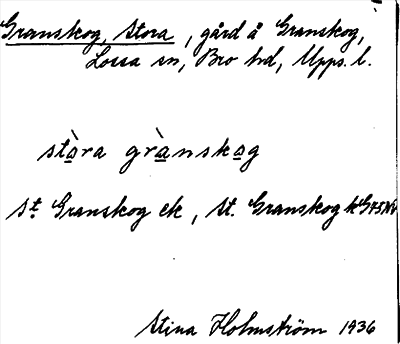 Granskog, Stora, gård å Granskog,
Lossa sn, Bro hd, Upps. l.
stòra grànskog
St Granskog ek, St. Granskog
Stina Holmström 1936